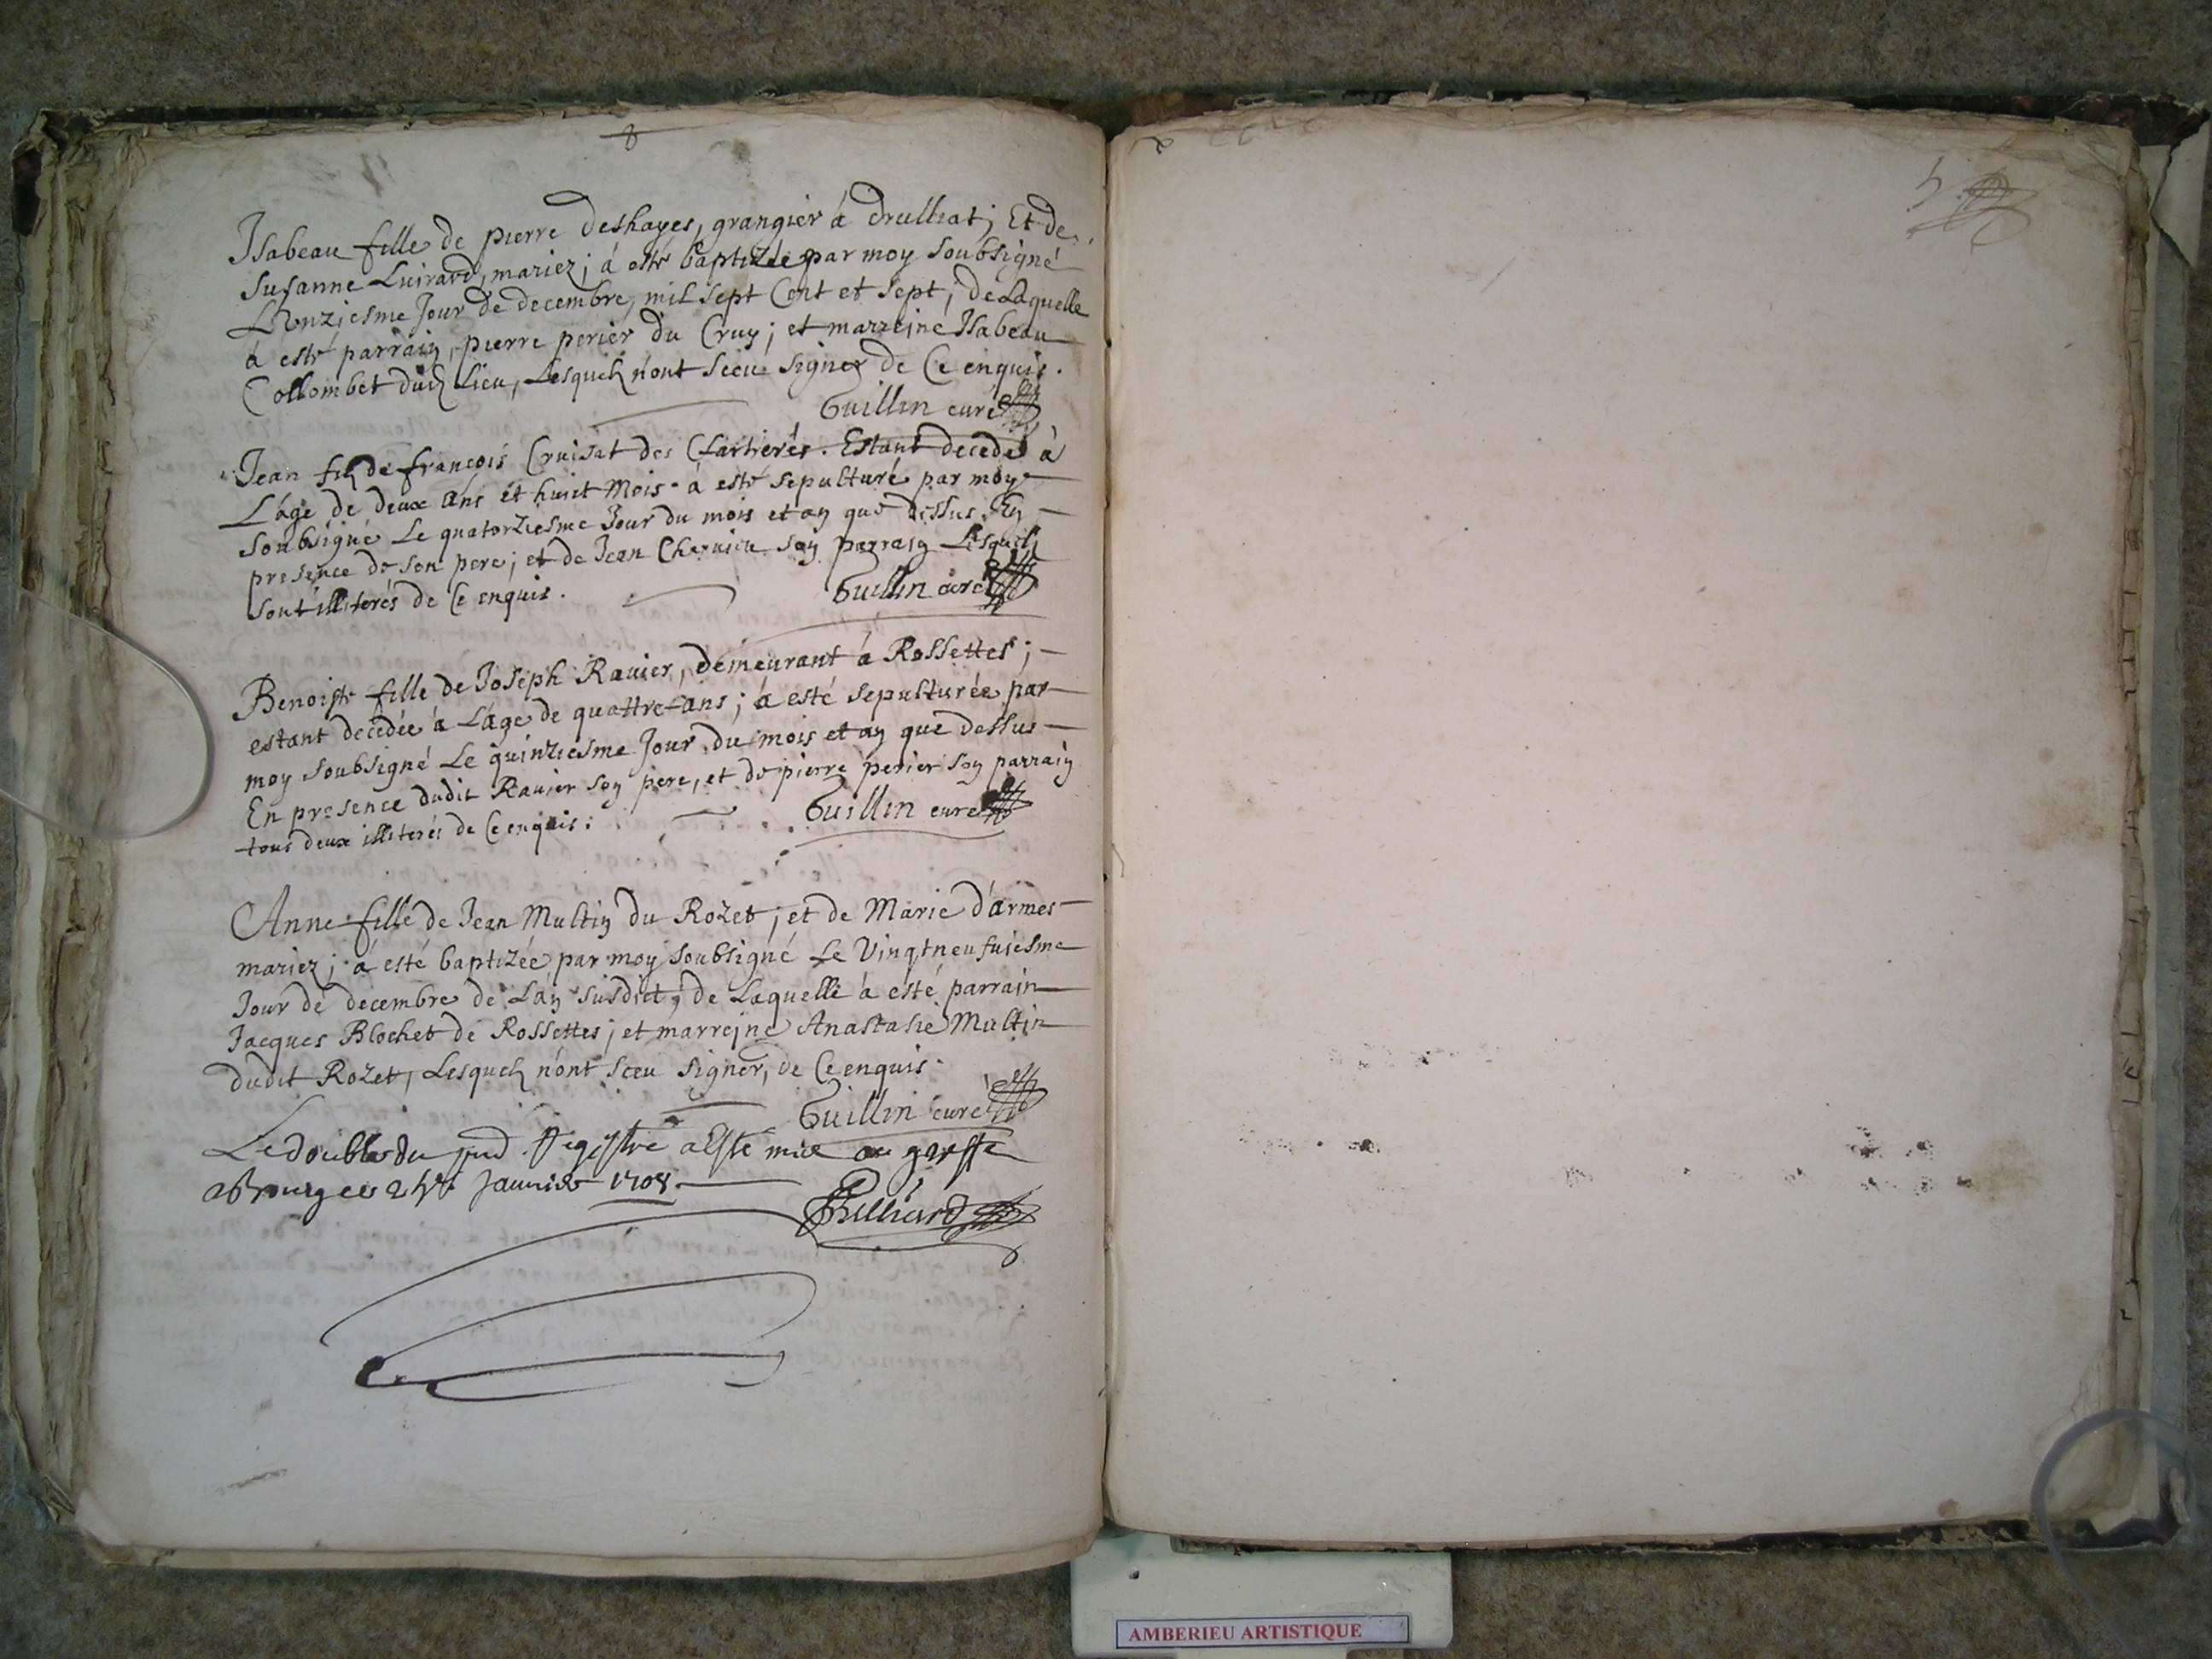 8
Isabeau fille de pierre deshayes, grangier à drulliat; Et de
Susanne Luirard, mariez; à esté baptizée par moy soubsigné
L'onziesme Jour de decembre, mil sept Cent et sept; de Laquelle
à esté parrain, pierre perier du Cruy; et marreine Isabeau
Collombet dud Lieu, Lesquels n'ont sceu signer de Ce enquis.
Guillin curé
Jean fils de françois Cruisat des Chartieres. Estant decedé à
L'âge de deux ans et huict Mois. à esté sepulturé par moy
soubsigné Le quatorziesme Jour du mois et an que dessus. En
presence de son pere; et de Jean son parrain Lesquels
sont illiterés de Ce enquis.
Guillin curé
Benoiste fille de Joseph Ravier, demeurant à Rossettes;
estant decedée à L'âge de quattre ans; à esté sepulturée par
moy soubsigné Le quinziesme Jour du mois et an que dessus
En presence dudit Ravier son pere, et de pierre perier son parrain
tous deux illiterés de Ce enquis:
Guillin curé
Anne fille de Jean Multin du Rozet; et de Marie d'armes
mariez; à esté baptizée par moy soubsigné Le Vingtneufuiesme
Jour de decembre de L'an susdict, de Laquelle à esté parrain
Jacques Blochet de Rossettes; et marreine Anastasie Multin
dudit Rozet, Lesquels n'ont sceu signer, de Ce enquis.
Guillin curé
Le double du Registre a Esté mis au greffe
a Bourg ce Januier 1708.
AMBERIEU ARTISTIQUE